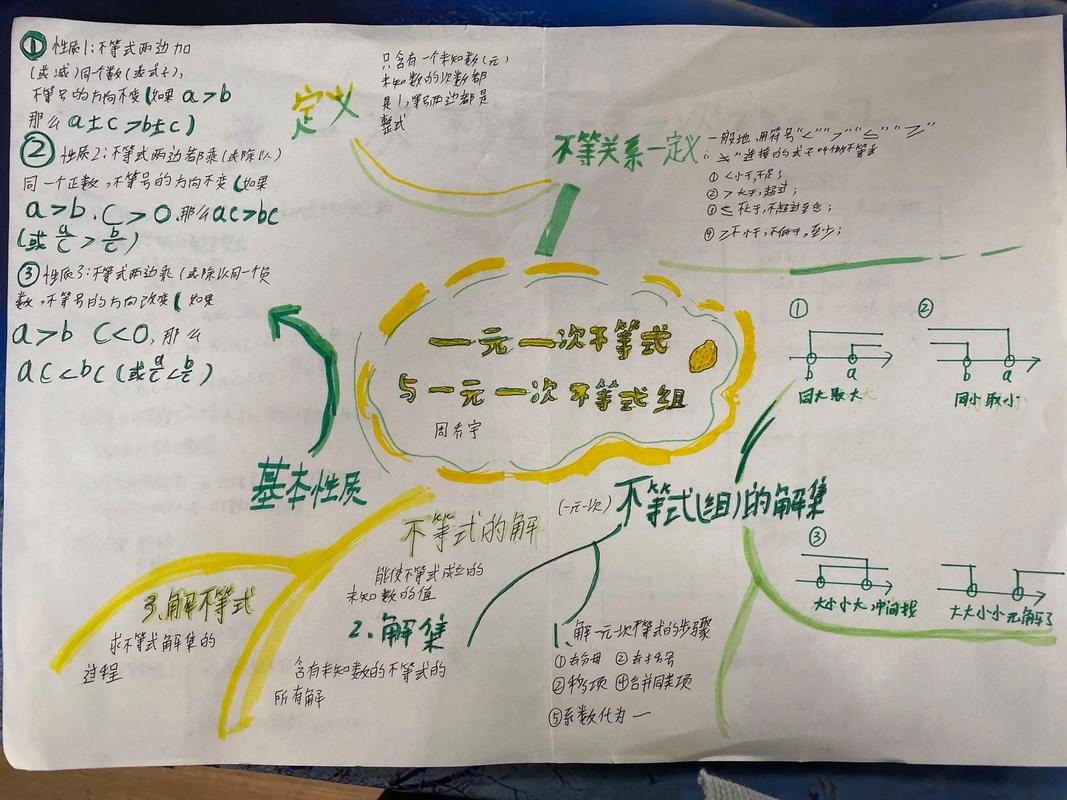 ① 性质1:不等式两边加
(或减)同个数(或式子),
不等号的方向不变(如果 a>b
那么 a±c>b±c)
② 性质2:不等式两边都乘(或除以)
同一个正数,不等号的方向不变(如果
a>b,c>0,那么ac>bc
(或a/c>b/c)
③ 性质3:不等式两边乘(或除以同一个负
数,不等号的方向改变(如果
a>b c<0,那么
ac<bc(或a/c<b/c)
定义
只含有一个未知数(元)
未知数的次数都
是1,等号两边都是
整式
不等关系一定义
一般地,用符号"<" ">" "≤" "≥"
连接的式子叫做不等式
① <小于,不足;
② >大于,超过;
③ ≤不大于,不超过
④ ≥不小于,不低于,至少;
一元一次不等式
与一元一次不等式组
基本性质
①
b a
同大取大
②
b a
同小取小
③
大小小大,中间找
大大小小无解了
(一元一次)不等式(组)的解集
不等式的解
能使不等式成立的
未知数的值
3.解不等式
求不等式解集的
过程
2、解集
含有未知数的不等式的
所有解
1、解一元一次不等式的步骤
①去分母 ②去括号
②移项 ④合并同类项
⑤系数化为一